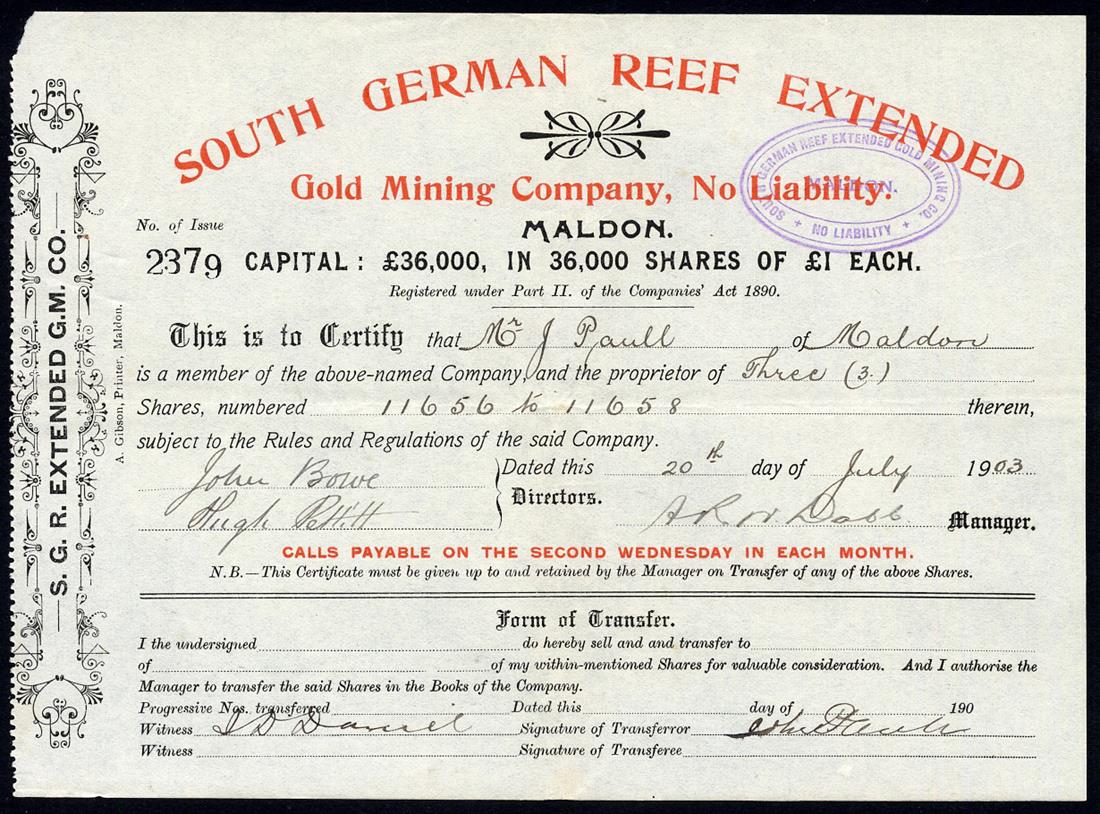 SOUTH GERMAN REEF EXTENDED
Gold Mining Company, No Liability.
SOUTH GERMAN REEF EXTENDED GOLD MINING CO.
MALDON.
+ NO LIABILITY +
No. of Issue
MALDON.
2379 CAPITAL: £36,000, IN 36,000 SHARES OF £1 EACH.
Registered under Part II. of the Companies' Act 1890.
This is to Certify that Mr J Paull of Maldon
is a member of the above-named Company, and the proprietor of Three (3.)
Shares, numbered 11656 to 11658 therein,
subject to the Rules and Regulations of the said Company.
John Bowe
Hugh Pettitt
Directors.
Dated this 20th day of July 1903
Dabb Manager.
CALLS PAYABLE ON THE SECOND WEDNESDAY IN EACH MONTH.
N.B.—This Certificate must be given up to and retained by the Manager on Transfer of any of the above Shares.
Form of Transfer.
I the undersigned do hereby sell and and transfer to
of of my within-mentioned Shares for valuable consideration. And I authorise the
Manager to transfer the said Shares in the Books of the Company.
Progressive Nos. transferred Dated this day of 190
Witness Daniel Signature of Transferror John Paull
Witness Signature of Transferee
S. G. R. EXTENDED G.M. CO.
A. Gibson, Printer, Maldon.